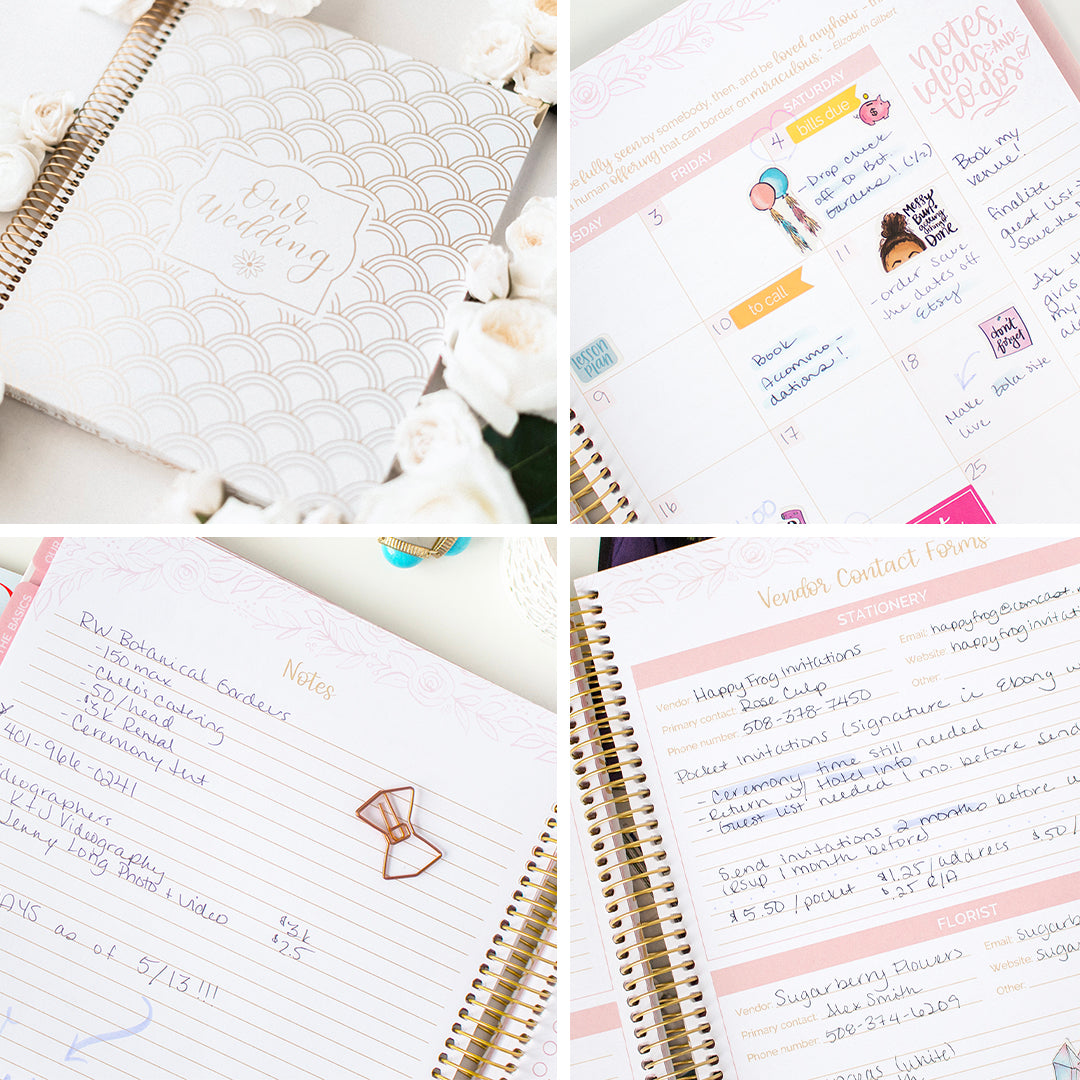 Our
Wedding
be fully seen by somebody, then, and be loved anyhow - th
human offering that can border on miraculous." - Elizabeth Gilbert
notes,
ideas AND
to do's
RSDAY
FRIDAY
SATURDAY
3
4
bills due
-Drop check
off to Bot.
Gardens! (1/2)
Book my
venue!
finalize
guest list
Save the
Ask
girls
my
lesson
plan
9
10
to call
Book
Accommo-
dations!
11
Messy
Bun
getting
Done
-order save
the dates off
Etsy
16
17
18
don't
forget
Make Zola site
live
25
THE BASICS
OUR
Notes
RW Botanical Gardens
-150 max
-Chelo's Catering
-50/head
-$3k Rental
-Ceremony tent
401-966-0241
ideographers
KTJ Videography
Jenny Long Photo + video
$3k
$2.5
AYS
as of 5/13!!!
Vendor Contact Forms
STATIONERY
Vendor: Happy Frog Invitations
Email: happyfrog@comcast.
Primary contact: Rose Culp
Website: happyfroginvitati
Phone number: 508-378-7450
Other:
Pocket Invitations (Signature in Ebony w
- Ceremony time still needed
- Return w/ Hotel Info
- Guest list needed 1 mo. before send
Send invitations 2 months before
(RSVP 1 month before)
$5.50/pocket $1.25/address $.50/
$.25 R/A
FLORIST
Vendor: Sugarberry Flowers
Email: sugarb
Primary contact: Alex Smith
Website: suga
Phone number: 508-374-6209
Other:
(white)